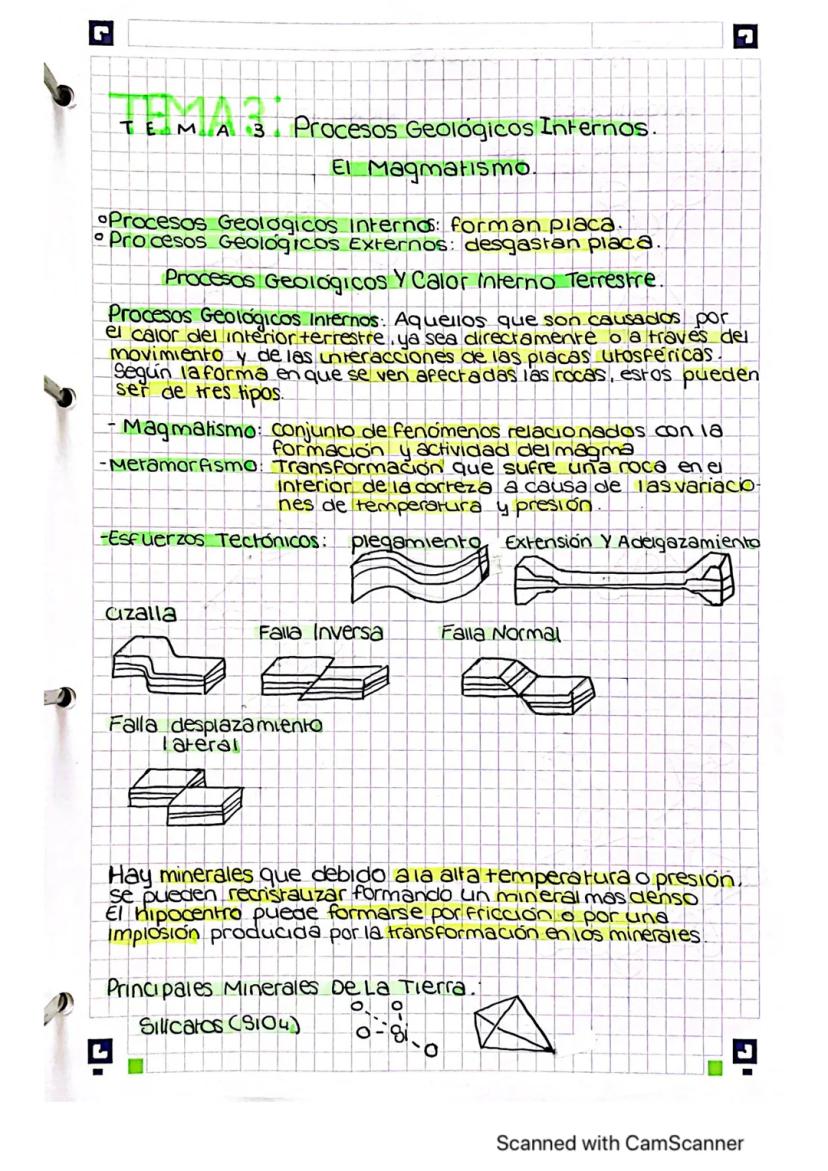 TEMA 3:
TEMA 3 Procesos Geológicos Internos.
El Magmatismo.
°Procesos Geológicos Internos: forman placa.
°Procesos Geológicos Externos: desgastan placa.
Procesos Geológicos Y Calor Interno Terrestre.
Procesos Geológicos Internos: Aquellos que son causados por
el calor del interior terrestre, ya sea directamente o a través del
movimiento y de las interacciones de las placas litosféricas.
Según la forma en que se ven afectadas las rocas, estos pueden
ser de tres tipos.
- Magmatismo: conjunto de fenómenos relacionados con la
formación y actividad del magma
-Metamorfismo: Transformación que sufre una roca en el
interior de la corteza a causa de las variacio-
nes de temperatura y presión.
-Esfuerzos Tectónicos: plegamiento Extensión Y Adelgazamiento
Cizalla
Falla Inversa Falla Normal
Falla desplazamiento
lateral
Hay minerales que debido a la alta temperatura o presión,
se pueden recristalizar formando un mineral mas denso
El hipocentro puede formarse por fricción o por una
implosión producida por la transformación en los minerales.
Principales Minerales De La Tierra.
Silicatos (SiO4)
O O
O Si
O
Scanned with CamScanner